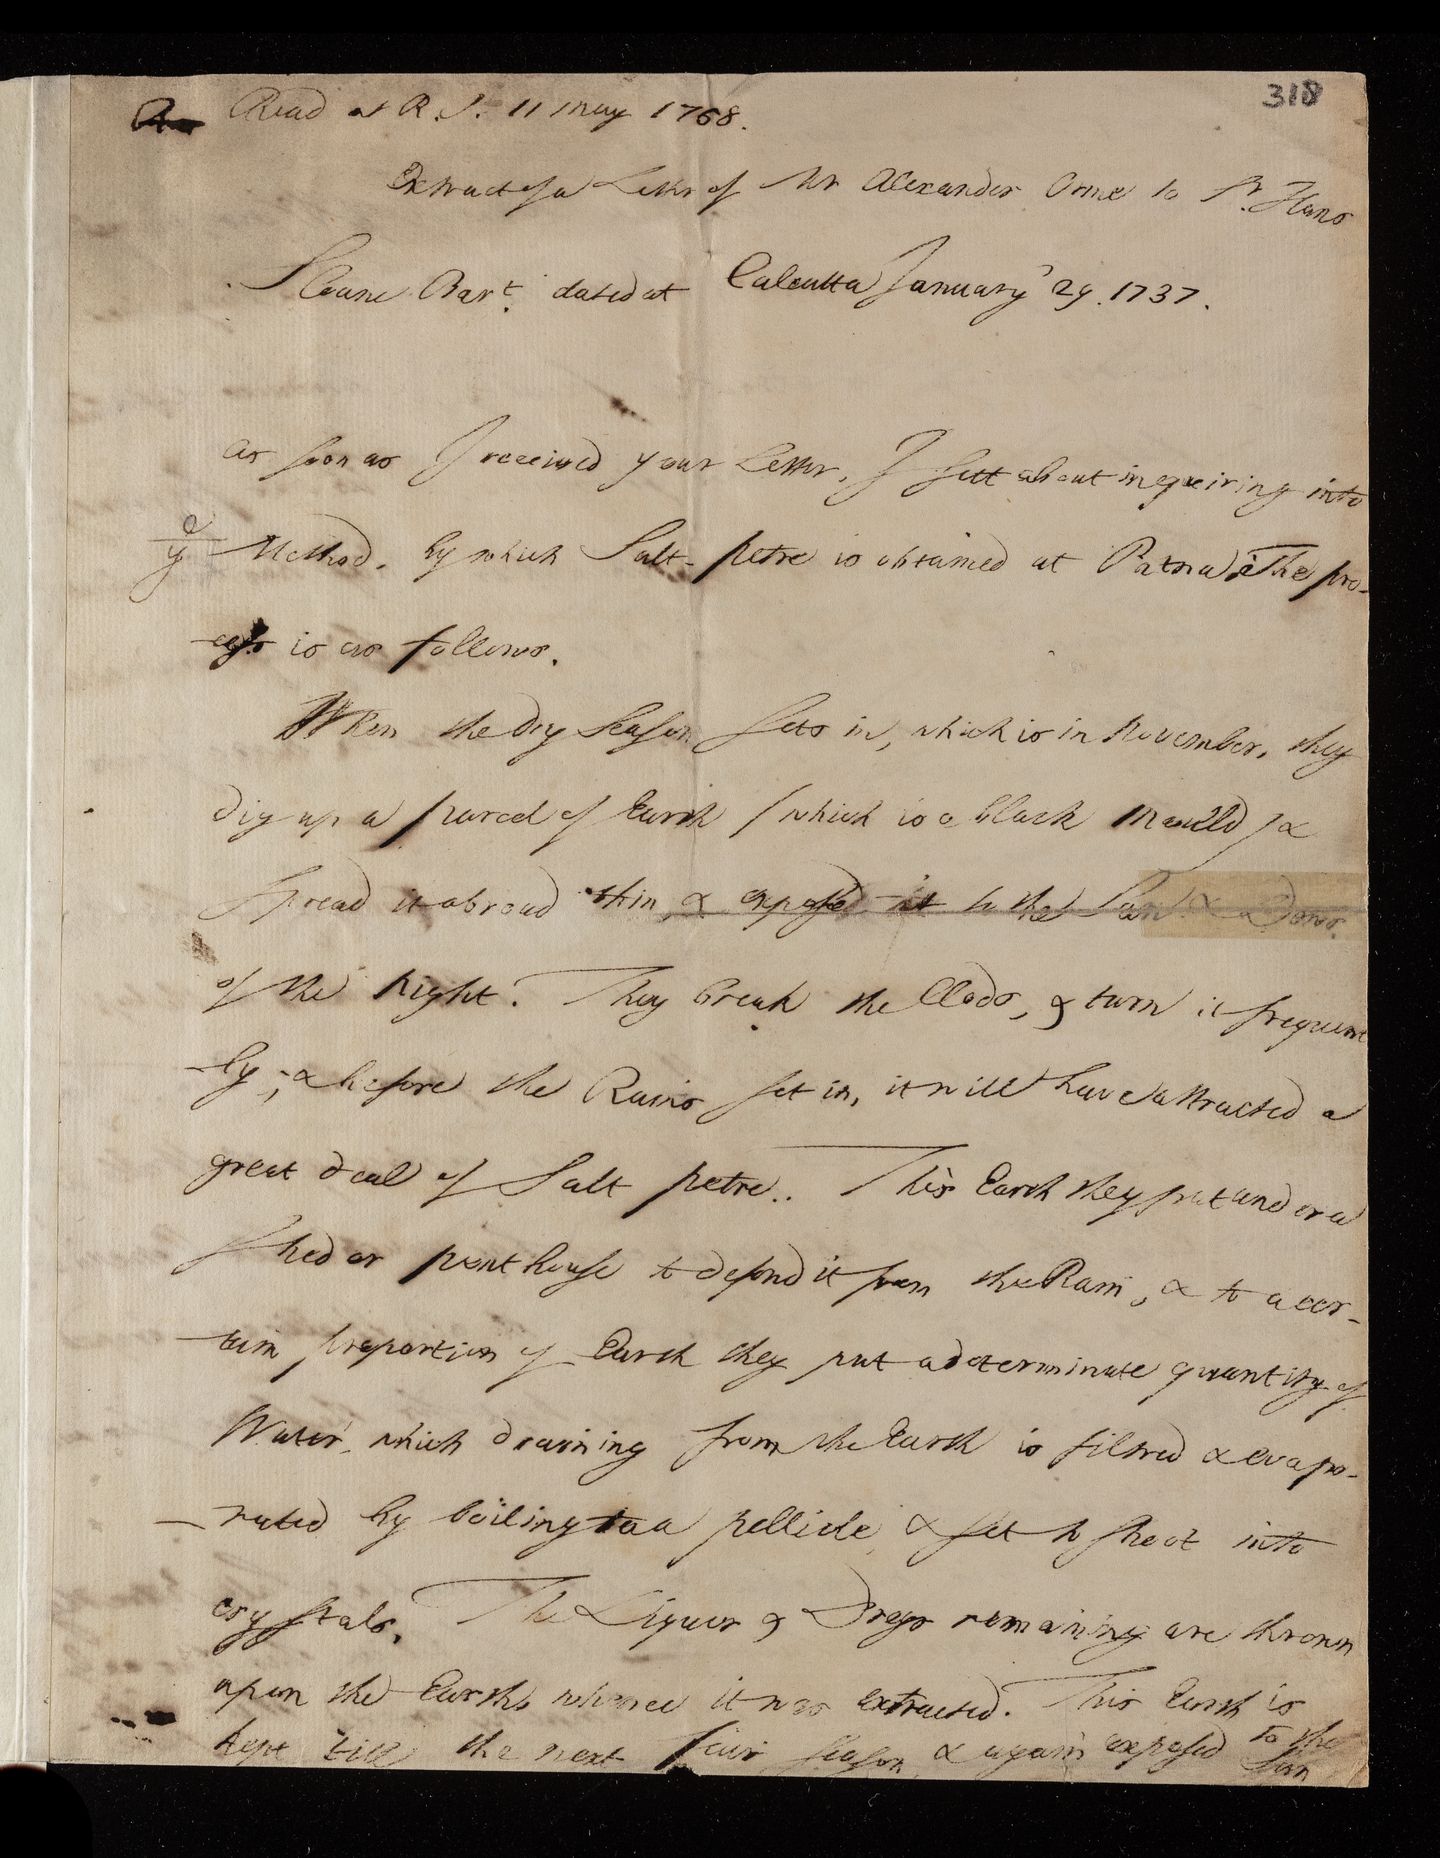 318
Read at R. S. 11 May 1768.
Extract of a Letter of Mr Alexander Orme to Sr. Hans
Sloane Bart. dated at Calcutta January 29. 1737.
as soon as I received your Letter, I sett about inquiring into
ye Method, by which Salt-petre is obtained at Patna, The pro-
-cess is as follows.
When the dry Season sets in, which is in November, they
dig up a parcel of Earth (which is a black Mould) &
spread it abroad thin, & expose it to the Sun & Dews
of the Night. They break the Clods, & turn it frequent
-ly; & before the Rains set in, it will have attracted a
great deal of Salt petre. This Earth they put under a
shed or penthouse to defend it from the Rain, & to a cer-
-tain proportion of Earth they put a determinate quantity of
Water, which draining from the Earth is filtred & evapo-
-rated by boiling to a pellicle & set to shoot into
crystals. The Liquor & Dregs remaining are thrown
upon the Earth, whence it was extracted. This Earth is
kept till the next fair season, & again exposed to the
Sun